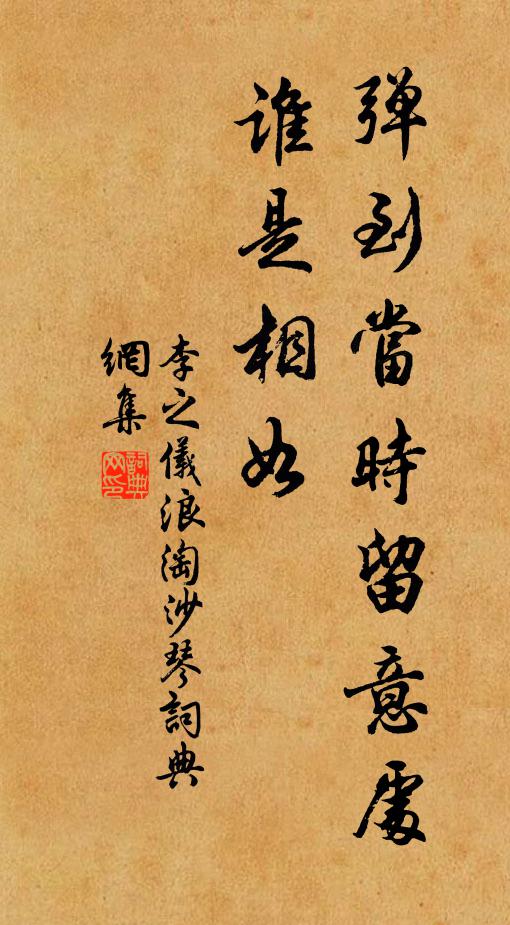 彈到當時留意處
誰是相如
李之儀浪淘沙琴詞典
網集
詞典網印